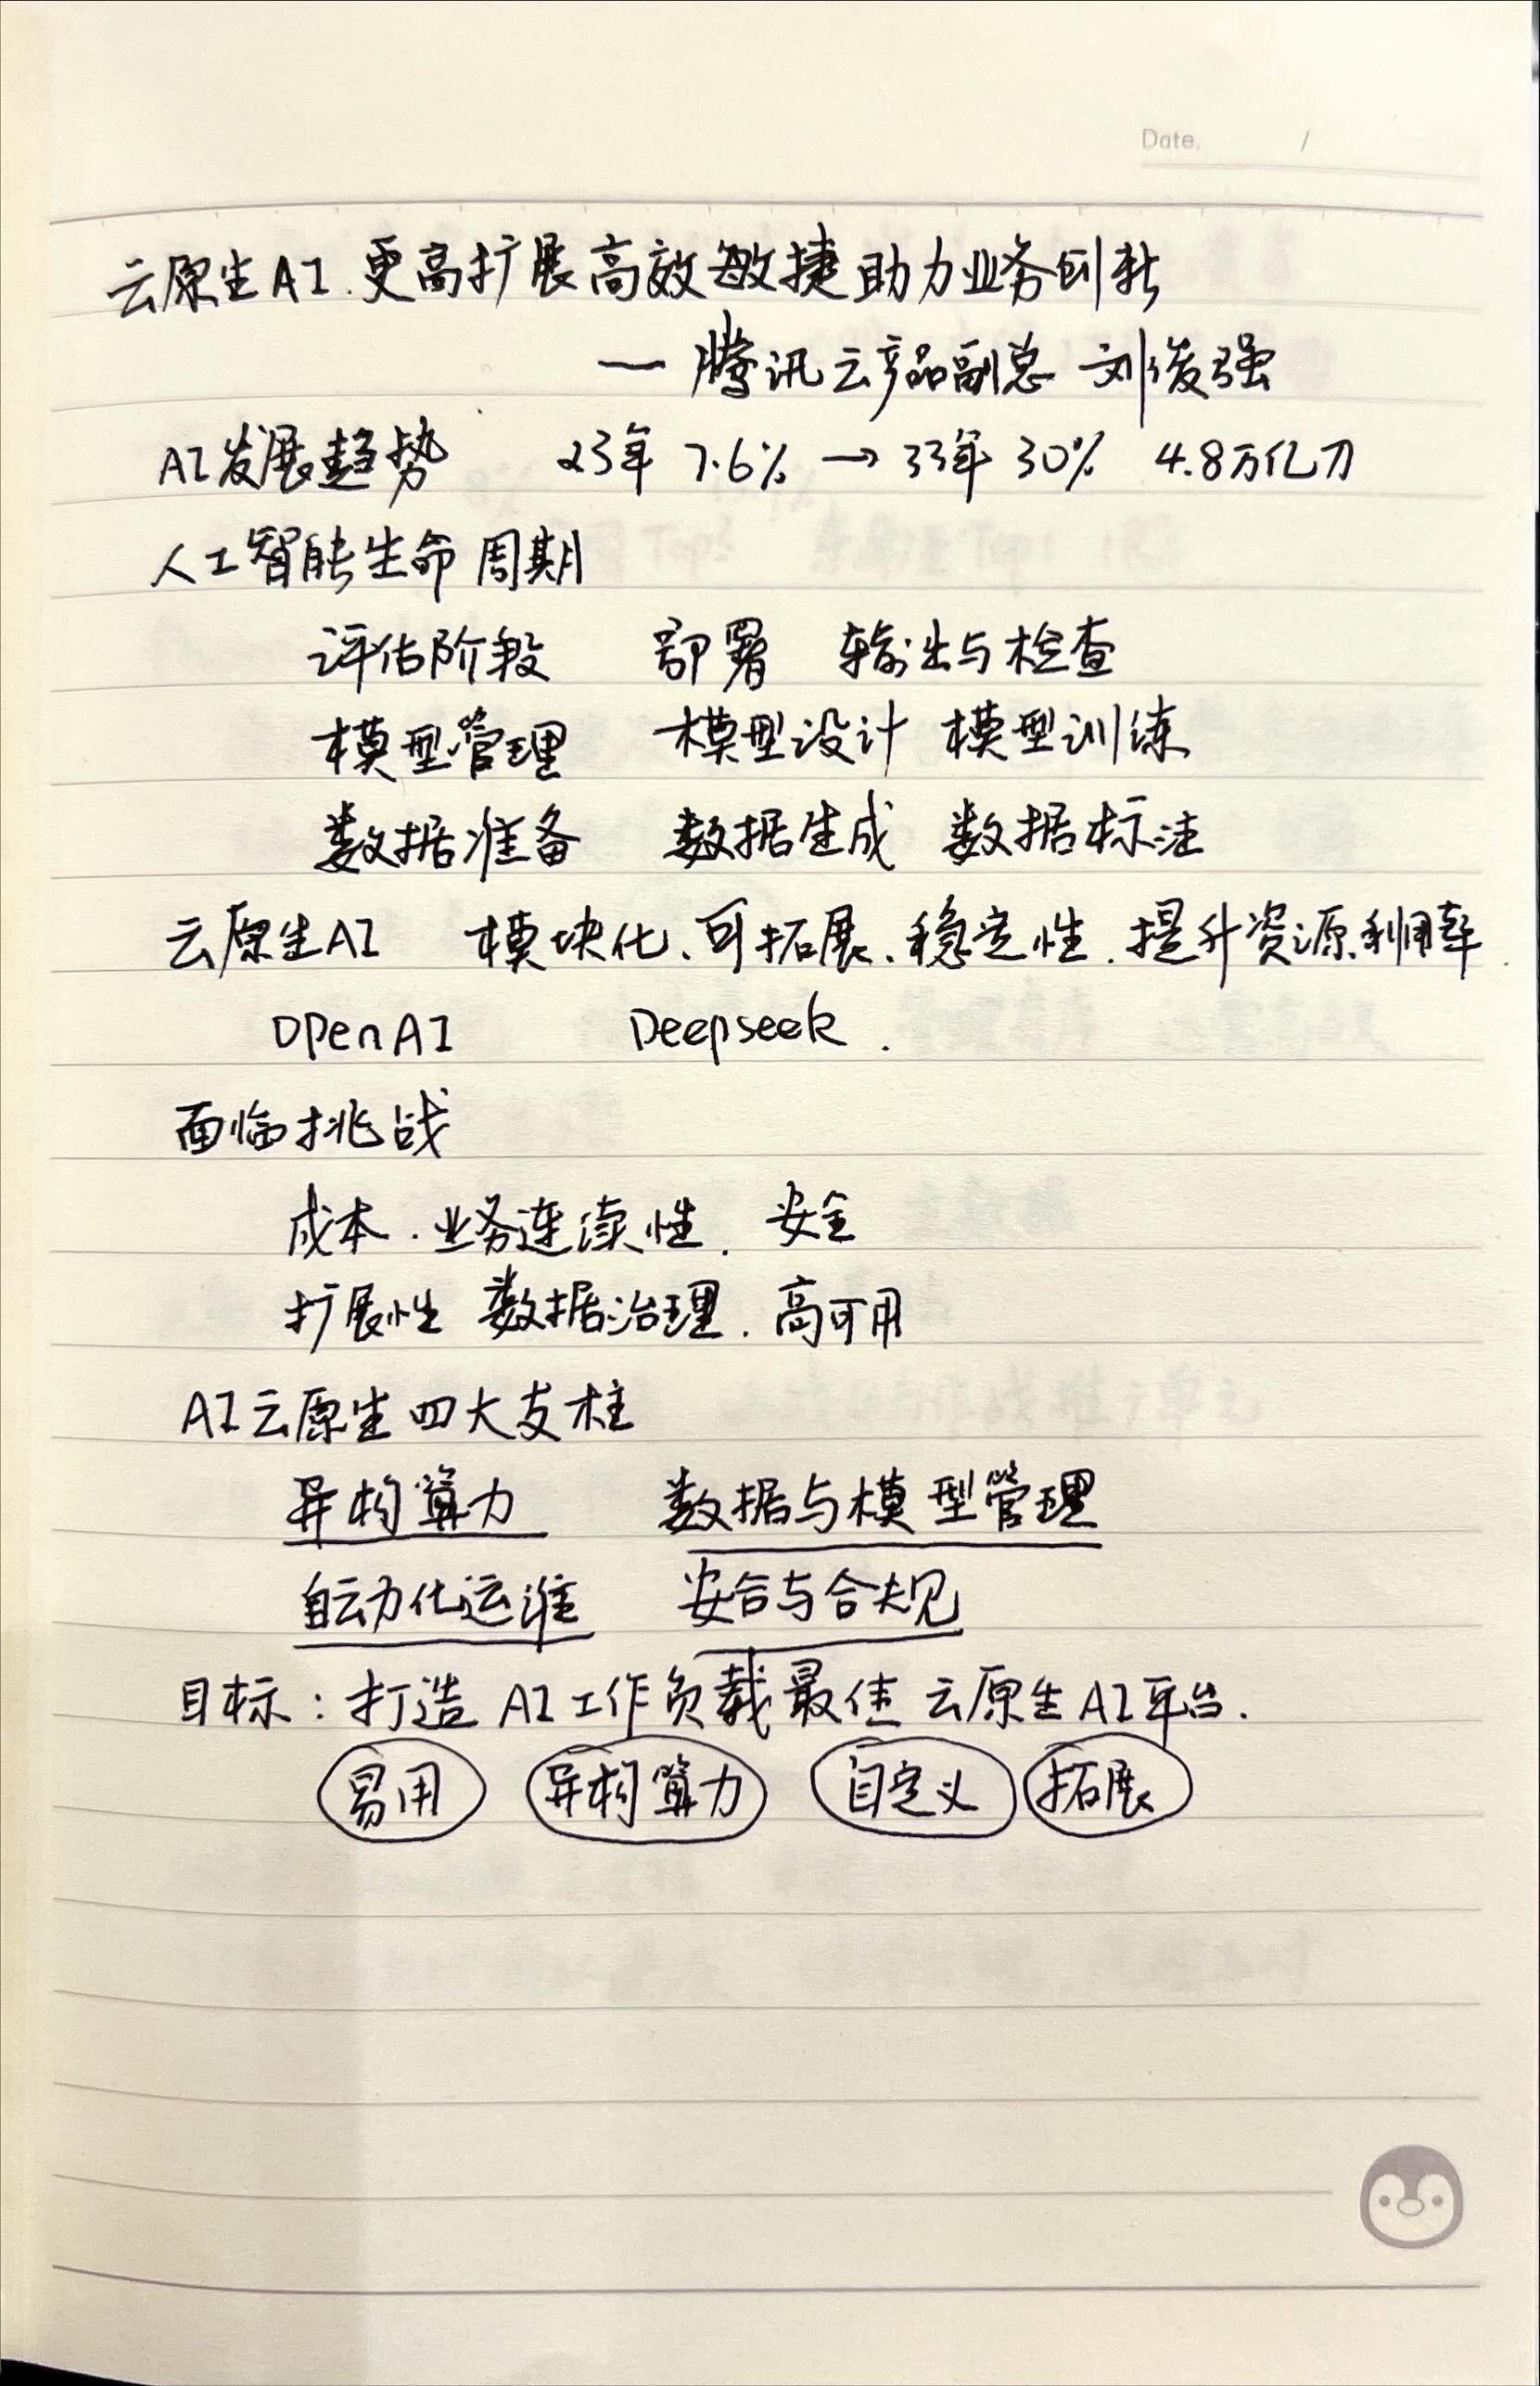 Date. /
云原生AI.更高扩展高效敏捷助力业务创新
— 腾讯云产品副总 刘俊强
AI发展趋势 23年 7.6% → 33年 30% 4.8万亿刀
人工智能生命周期
评估阶段 部署 输出与检查
模型管理 模型设计 模型训练
数据准备 数据生成 数据标注
云原生AI 模块化、可拓展、稳定性.提升资源利用率.
OpenAI Deepseek.
面临挑战
成本.业务连续性.安全
扩展性 数据治理.高可用
AI云原生四大支柱
异构算力 数据与模型管理
自动化运维 安合与合规
目标：打造AI工作负载最佳云原生AI平台.
易用 异构算力 自定义 拓展